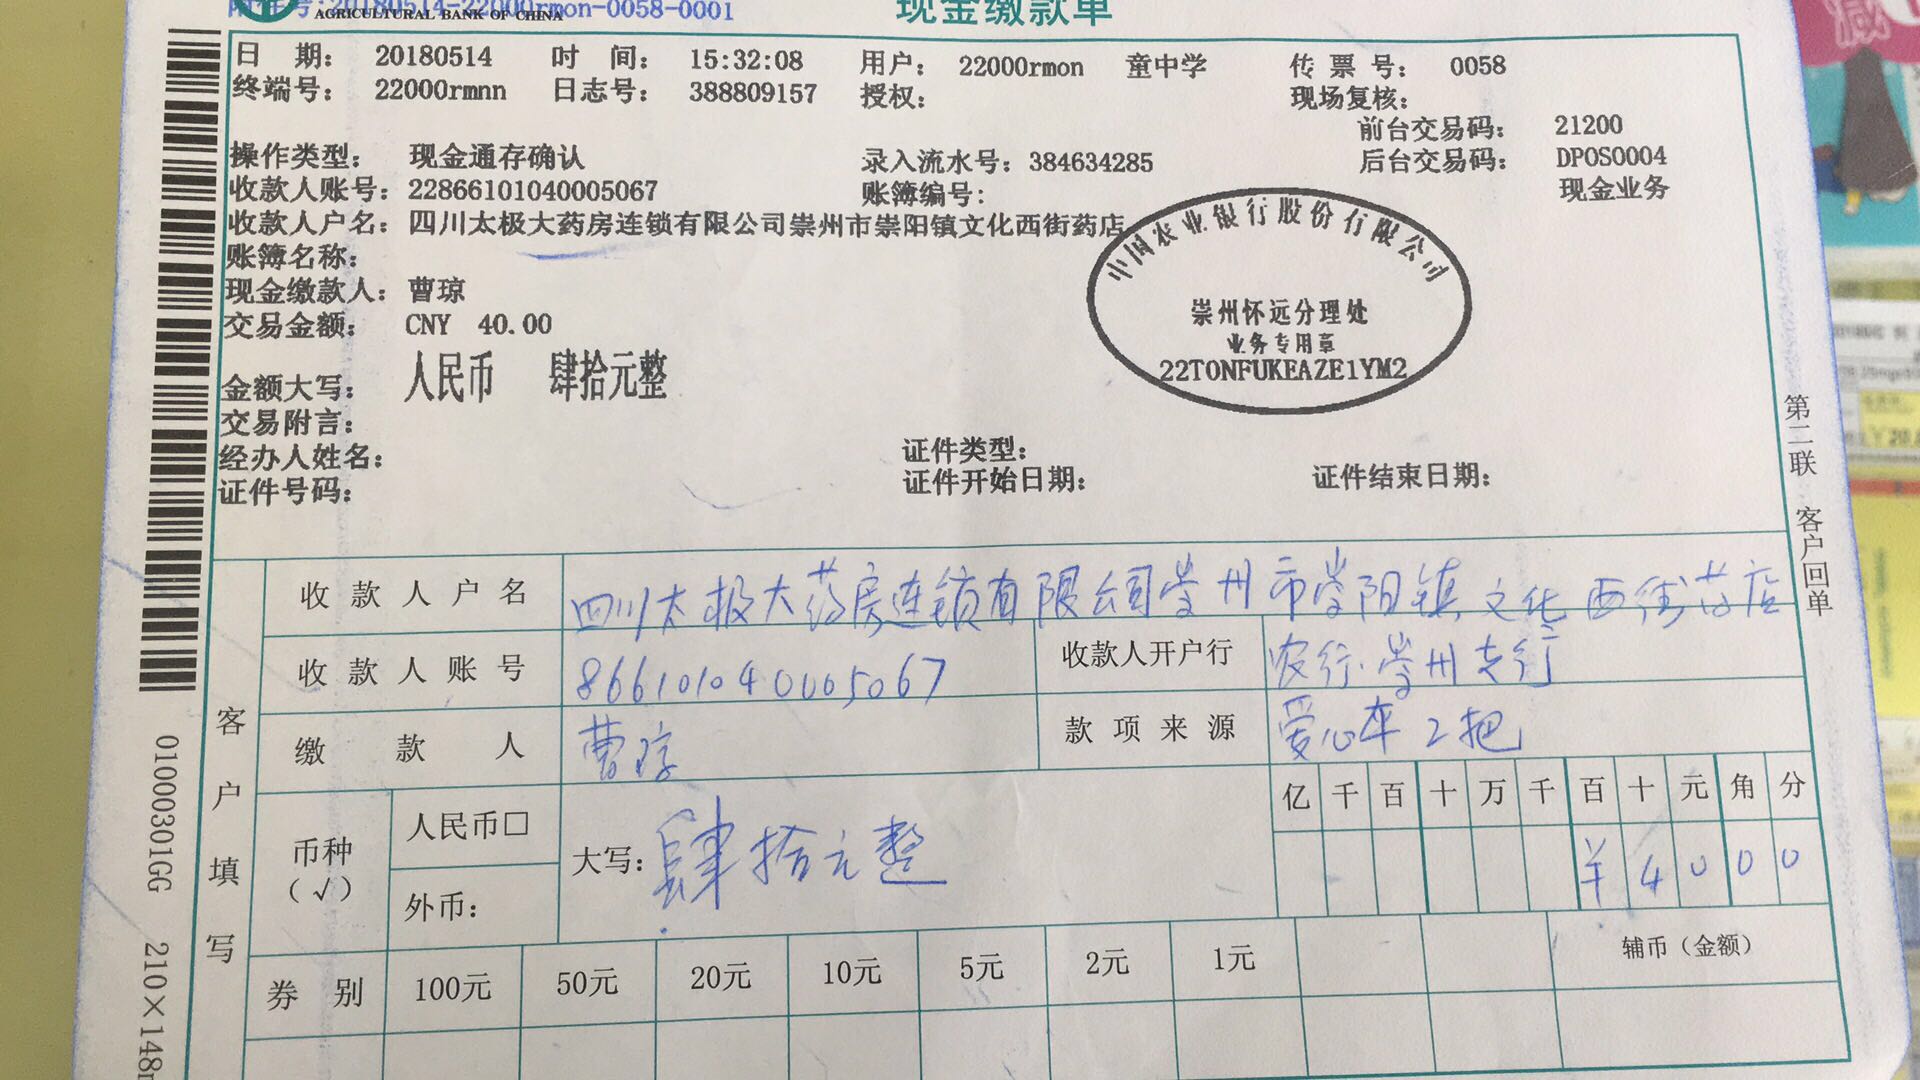 附件号:20180514-22000rmon-0058-0001
AGRICULTURAL BANK OF CHINA
现金缴款单
日 期: 20180514 时 间: 15:32:08 用户: 22000rmon 童中学 传 票 号: 0058
终端号: 22000rmnn 日志号: 388809157 授权: 现场复核:
前台交易码: 21200
操作类型: 现金通存确认 录入流水号: 384634285 后台交易码: DPOS0004
收款人账号: 22866101040005067 账簿编号: 现金业务
收款人户名: 四川太极大药房连锁有限公司崇州市崇阳镇文化西街药店
账簿名称:
现金缴款人: 曹琼
交易金额: CNY 40.00
金额大写: 人民币 肆拾元整
交易附言:
经办人姓名: 证件类型:
证件号码: 证件开始日期: 证件结束日期:
中国农业银行股份有限公司
崇州怀远分理处
业务专用章
22TONFUKEAZE1YM2
第二联 客户回单
客户填写
收款人户名 四川太极大药房连锁有限公司崇州市崇阳镇文化西街药店
收款人账号 866101040005067 收款人开户行 农行.崇州支行
缴款人 曹琼 款项来源 爱心伞2把
币种(√) 人民币□ 大写: 肆拾元整 亿 千 百 十 万 千 百 十 元 角 分
外币: ¥ 4 0 0 0
券别 100元 50元 20元 10元 5元 2元 1元 辅币(金额)
010000301GG
210×148